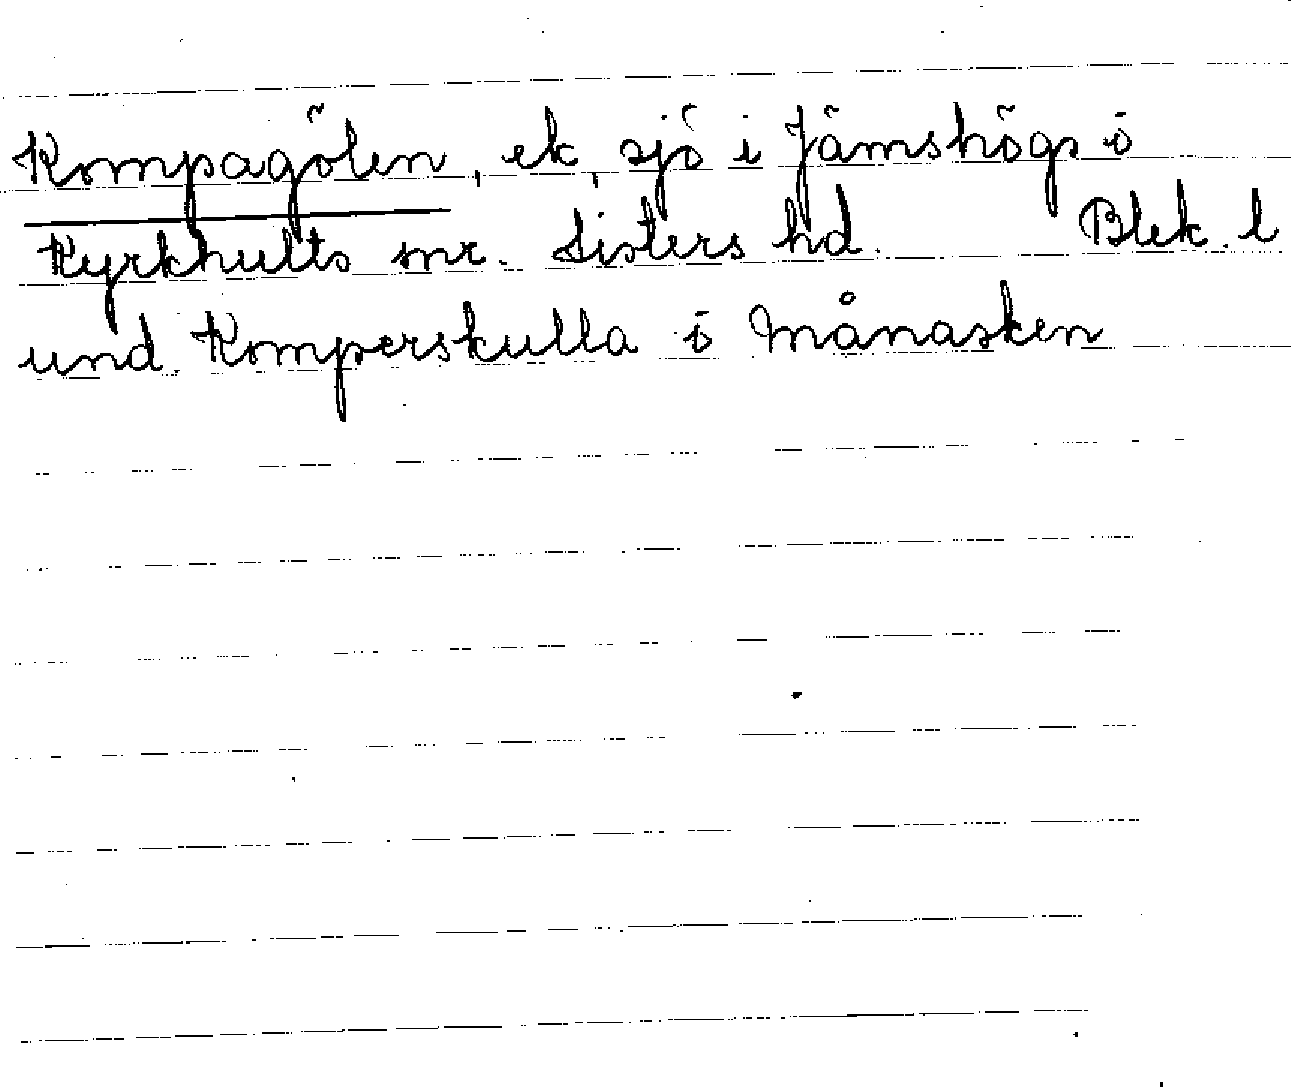 Kompagölen, ek, sjö i Jämshögs o
Kyrkhults snr. Listers hd. Blek. l
und. Komperskulla i Månasken